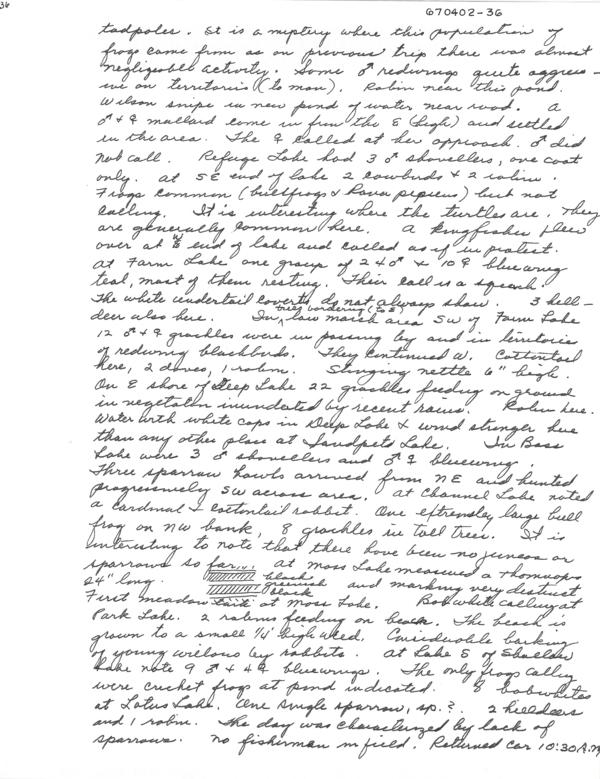 36
670402-36
tadpoles. It is a mystery where this population of
frogs came from as on previous trip there was almost
negligeable activity. Some ♂ redwings quite aggress-
ive on territories (to man). Robin near this pond.
Wilson snipe in new pond of water near wood. A
♂ + ♀ mallard come in from the E (high) and settled
in the area. The ♀ called at her approach. ♂ did
not call. Refuge Lake had 3 ♂ shovellers, one coot
only. At SE end of lake 2 cowbirds & 2 robins.
Frogs common (bullfrogs & Rana pipiens) but not
calling. It is interesting where the turtles are. They
are generally common here. A kingfisher flew
over at W end of lake and called as if in protest.
At Farm Lake one group of 24 ♂ & 10 ♀ bluewing
teal, most of them resting. Their call is a squeak.
The white undertail coverts do not always show. 3 kill-
deer also here. In low marsh area SW of Farm Lake
trees bordering (to E)
12 ♂ + ♀ grackles were in passing by and in territories
of redwing blackbirds. They continued W. Cottontail
here, 2 doves, 1 robin. Stinging nettle 6" high.
On E shore of Deep Lake 22 grackles feeding on ground
in vegetation inundated by recent rains. Robin here.
Water with white caps in Deep Lake & wind stronger here
than any other place at Sandpits Lake. In Bass
Lake were 3 ♂ shovellers and ♂ ♀ bluewing.
Three sparrow hawks arrived from NE and hunted
progressively SW across area. At Channel Lake noted
a cardinal & cottontail rabbit. One extremely large bull
frog on NW bank, 8 grackles in tall trees. It is
interesting to note that there have been no juncos or
sparrows so far... At Moss Lake measured a Thamnops
24" long. black
greenish and marking very distinct
black
First meadow lark at Moss Lake. Bobwhite calling at
Park Lake. 2 robins feeding on beach. The beach is
grown to a small 1/4" high weed. Considerable barking
of young willows by rabbits. At Lake S of Shallow
Lake note 9 ♂ & 4 ♀ bluewings. The only frogs calling
were cricket frogs at pond indicated. 8 bobwhites
at Lotus Lake. One single sparrow, sp.?. 2 killdeers
and 1 robin. The day was characterized by lack of
sparrows. No fisherman in field. Returned car 10:30 A.M.